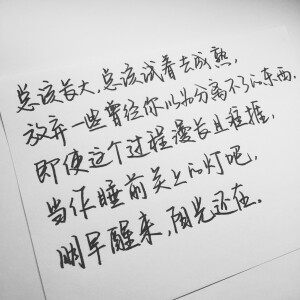 总该长大,总该试着去成熟,
放弃一些曾经你以为分离不了的东西.
即使这个过程漫长且拥挤,
当作睡前关上的灯吧,
明早醒来,阳光还在.